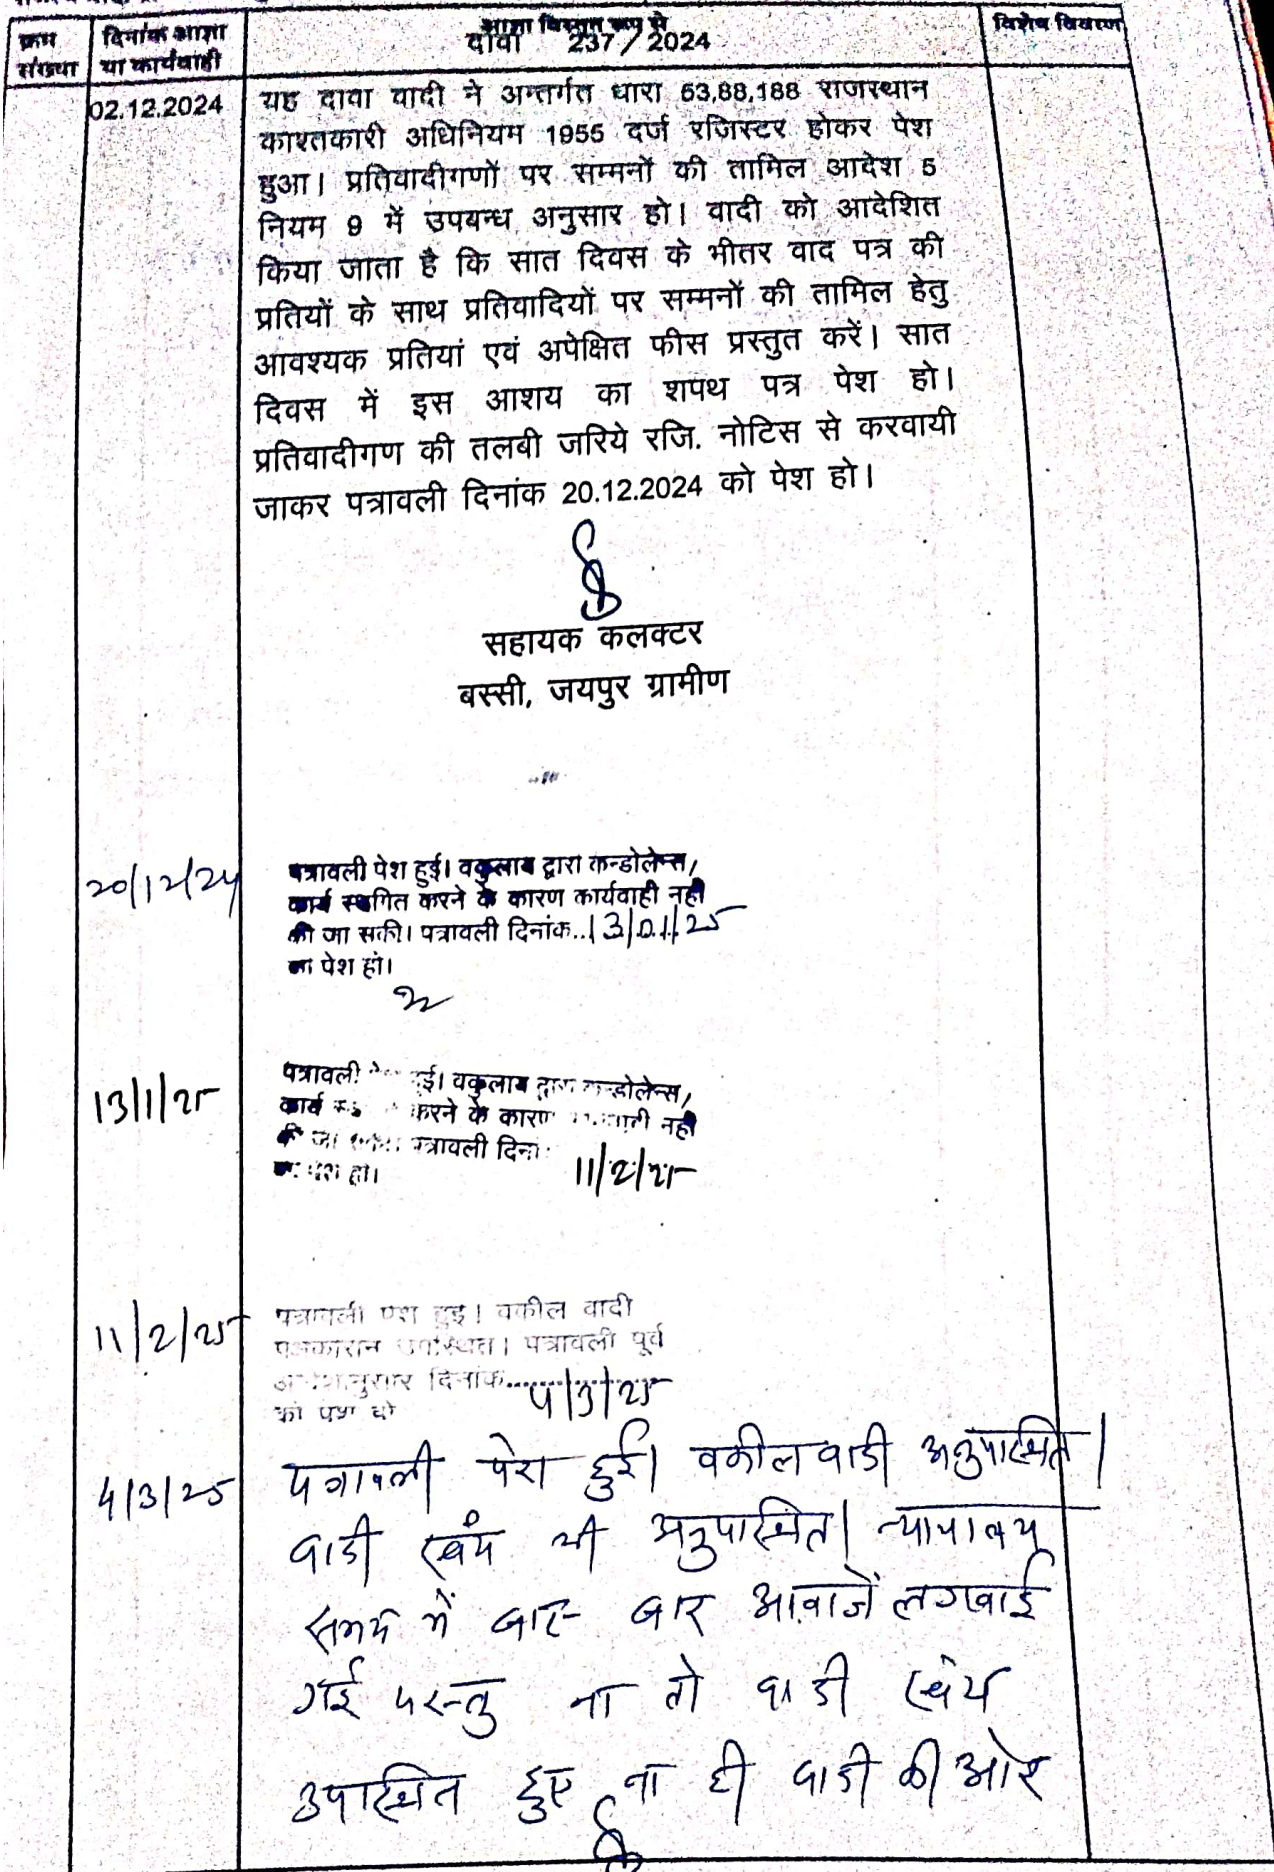 क्रम संख्या
दिनांक आज्ञा या कार्यवाही
आज्ञा विस्तृत रूप से
विशेष विवरण
दावा 237/2024
02.12.2024
यह दावा वादी ने अन्तर्गत धारा 53,88,188 राजस्थान
काश्तकारी अधिनियम 1955 दर्ज रजिस्टर होकर पेश
हुआ। प्रतिवादीगणों पर सम्मनों की तामिल आदेश 5
नियम 9 में उपबन्ध अनुसार हो। वादी को आदेशित
किया जाता है कि सात दिवस के भीतर वाद पत्र की
प्रतियों के साथ प्रतिवादियों पर सम्मनों की तामिल हेतु
आवश्यक प्रतियां एवं अपेक्षित फीस प्रस्तुत करें। सात
दिवस में इस आशय का शपथ पत्र पेश हो।
प्रतिवादीगण की तलबी जरिये रजि. नोटिस से करवायी
जाकर पत्रावली दिनांक 20.12.2024 को पेश हो।
सहायक कलक्टर
बस्सी, जयपुर ग्रामीण
20/12/24
पत्रावली पेश हुई। वकुलाय द्वारा कन्डोलेन्स,
कार्य स्थगित करने के कारण कार्यवाही नही
की जा सकी। पत्रावली दिनांक..13/01/25
का पेश हो।
13/1/25
पत्रावली हुई। वकुलाय द्वारा कन्डोलेन्स,
कार्य करने के कारण नही
की जा पत्रावली दिनां
11/2/25
पेश हो।
11/2/25
पत्रावली पेश हुई। वकील वादी
उपस्थित। पत्रावली पूर्व
दिनांक.......4/3/25
को पेश हो
4/3/25
पत्रावली पेश हुई। वकील वादी अनुपस्थित।
वादी स्वंय भी अनुपस्थित। न्यायालय
समय में बार-बार आवाजें लगवाई
गई परन्तु ना तो वादी स्वंय
उपस्थित हुए ना ही वादी की ओर